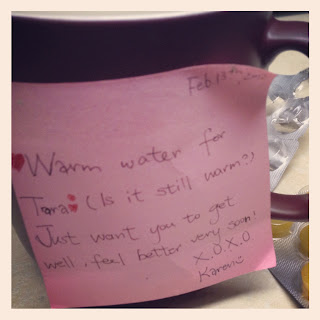 Feb 13th,
Warm water for
Tara (Is it still warm?)
Just want you to get
well, feel better very soon!
X.O.X.O